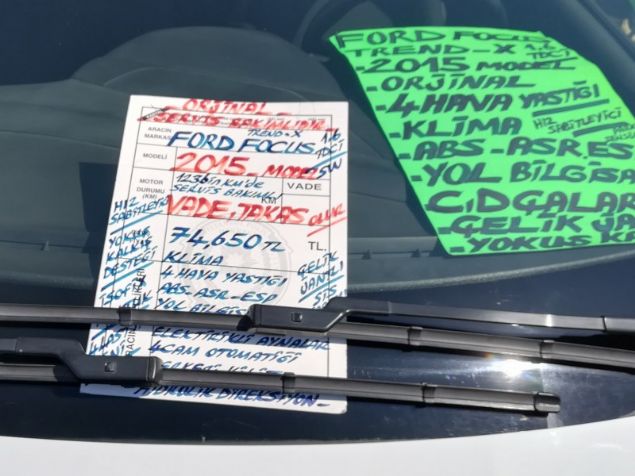 ORJİNAL
SERVİS BAKIMLIDIR
TREND-X
ARACIN
MARKASI
FORD FOCUS
1.6
TDCİ
SW
MODELİ
2015 MODEL
MOTOR
DURUMU
(KM)
123bin Km'de
SERVİS BAKIMLI
KM
VADE
VADE, TAKAS OLUR
74,650 TL
TL.
HIZ
SABİTLEYİCİ
YOKUŞ
KALKIŞ
DESTEĞİ
KLİMA
4 HAVA YASTIĞI
ABS-ASR-ESP
YOL BİLGİS
ÇELİK
JANTLI
ELEKTRİKLİ AYNALAR
4 CAM OTOMATİĞİ
HİDROLİK DİREKSİYON-
FORD FOCUS
TREND-X
TDCİ
-2015 MODEL
-ORJİNAL
-4 HAVA YASTIĞI
-KLİMA
HIZ
SABİTLEYİCİ
-ABS-ASR.ES
-YOL BİLGİSA
CİDGALAR
-ÇELİK JA
-YOKUŞ K